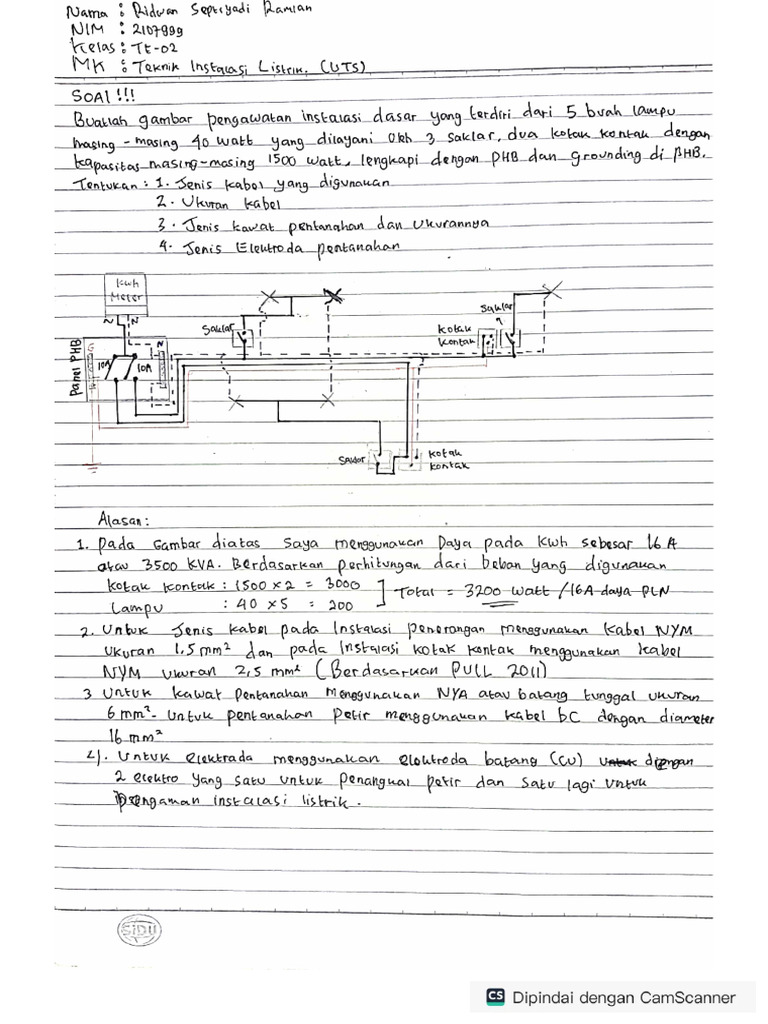 Nama : Ridwan Septiyadi Ramlan
NIM : 2107999
Kelas : TE-02
MK : Teknik Instalasi Listrik (UTS)
SOAl !!!
Buatlah gambar pengawatan instalasi dasar yang terdiri dari 5 buah lampu
masing-masing 40 watt yang dilayani oleh 3 saklar, dua kotak kontak dengan
kapasitas masing-masing 1500 watt, lengkapi dengan PHB dan grounding di PHB.
Tentukan : 1. Jenis kabel yang digunakan
2. Ukuran kabel
3. Jenis kawat pentanahan dan Ukurannya
4. Jenis Elektroda pentanahan
kwh
Meter
Saklar
Saklar
kotak
kontak
N
Panel PHB
G
10A
10A
N
Saklar
kotak
kontak
Alasan :
1. Pada Gambar diatas Saya menggunakan Daya pada kwh sebesar 16 A
atau 3500 KVA. Berdasarkan perhitungan dari beban yang digunakan
kotak kontak : 1500 x 2 = 3000
Lampu : 40 x 5 = 200
Total = 3200 watt /16A daya PLN
2. Untuk Jenis kabel pada Instalasi penerangan menggunakan kabel NYM
ukuran 1,5 mm² dan pada Instalasi kotak kontak menggunakan kabel
NYM ukuran 2,5 mm² (Berdasarkan PUIL 2011)
3 Untuk kawat Pentanahan Menggunakan NYA atau batang tunggal ukuran
6 mm². Untuk pentanahan Petir menggunakan kabel BC dengan diameter
16 mm²
4). Untuk elektrada menggunakan elektroda batang (CU) dengan
2 elektro yang satu untuk penangkal petir dan satu lagi untuk
pengaman instalasi listrik.
SIDU
CS Dipindai dengan CamScanner